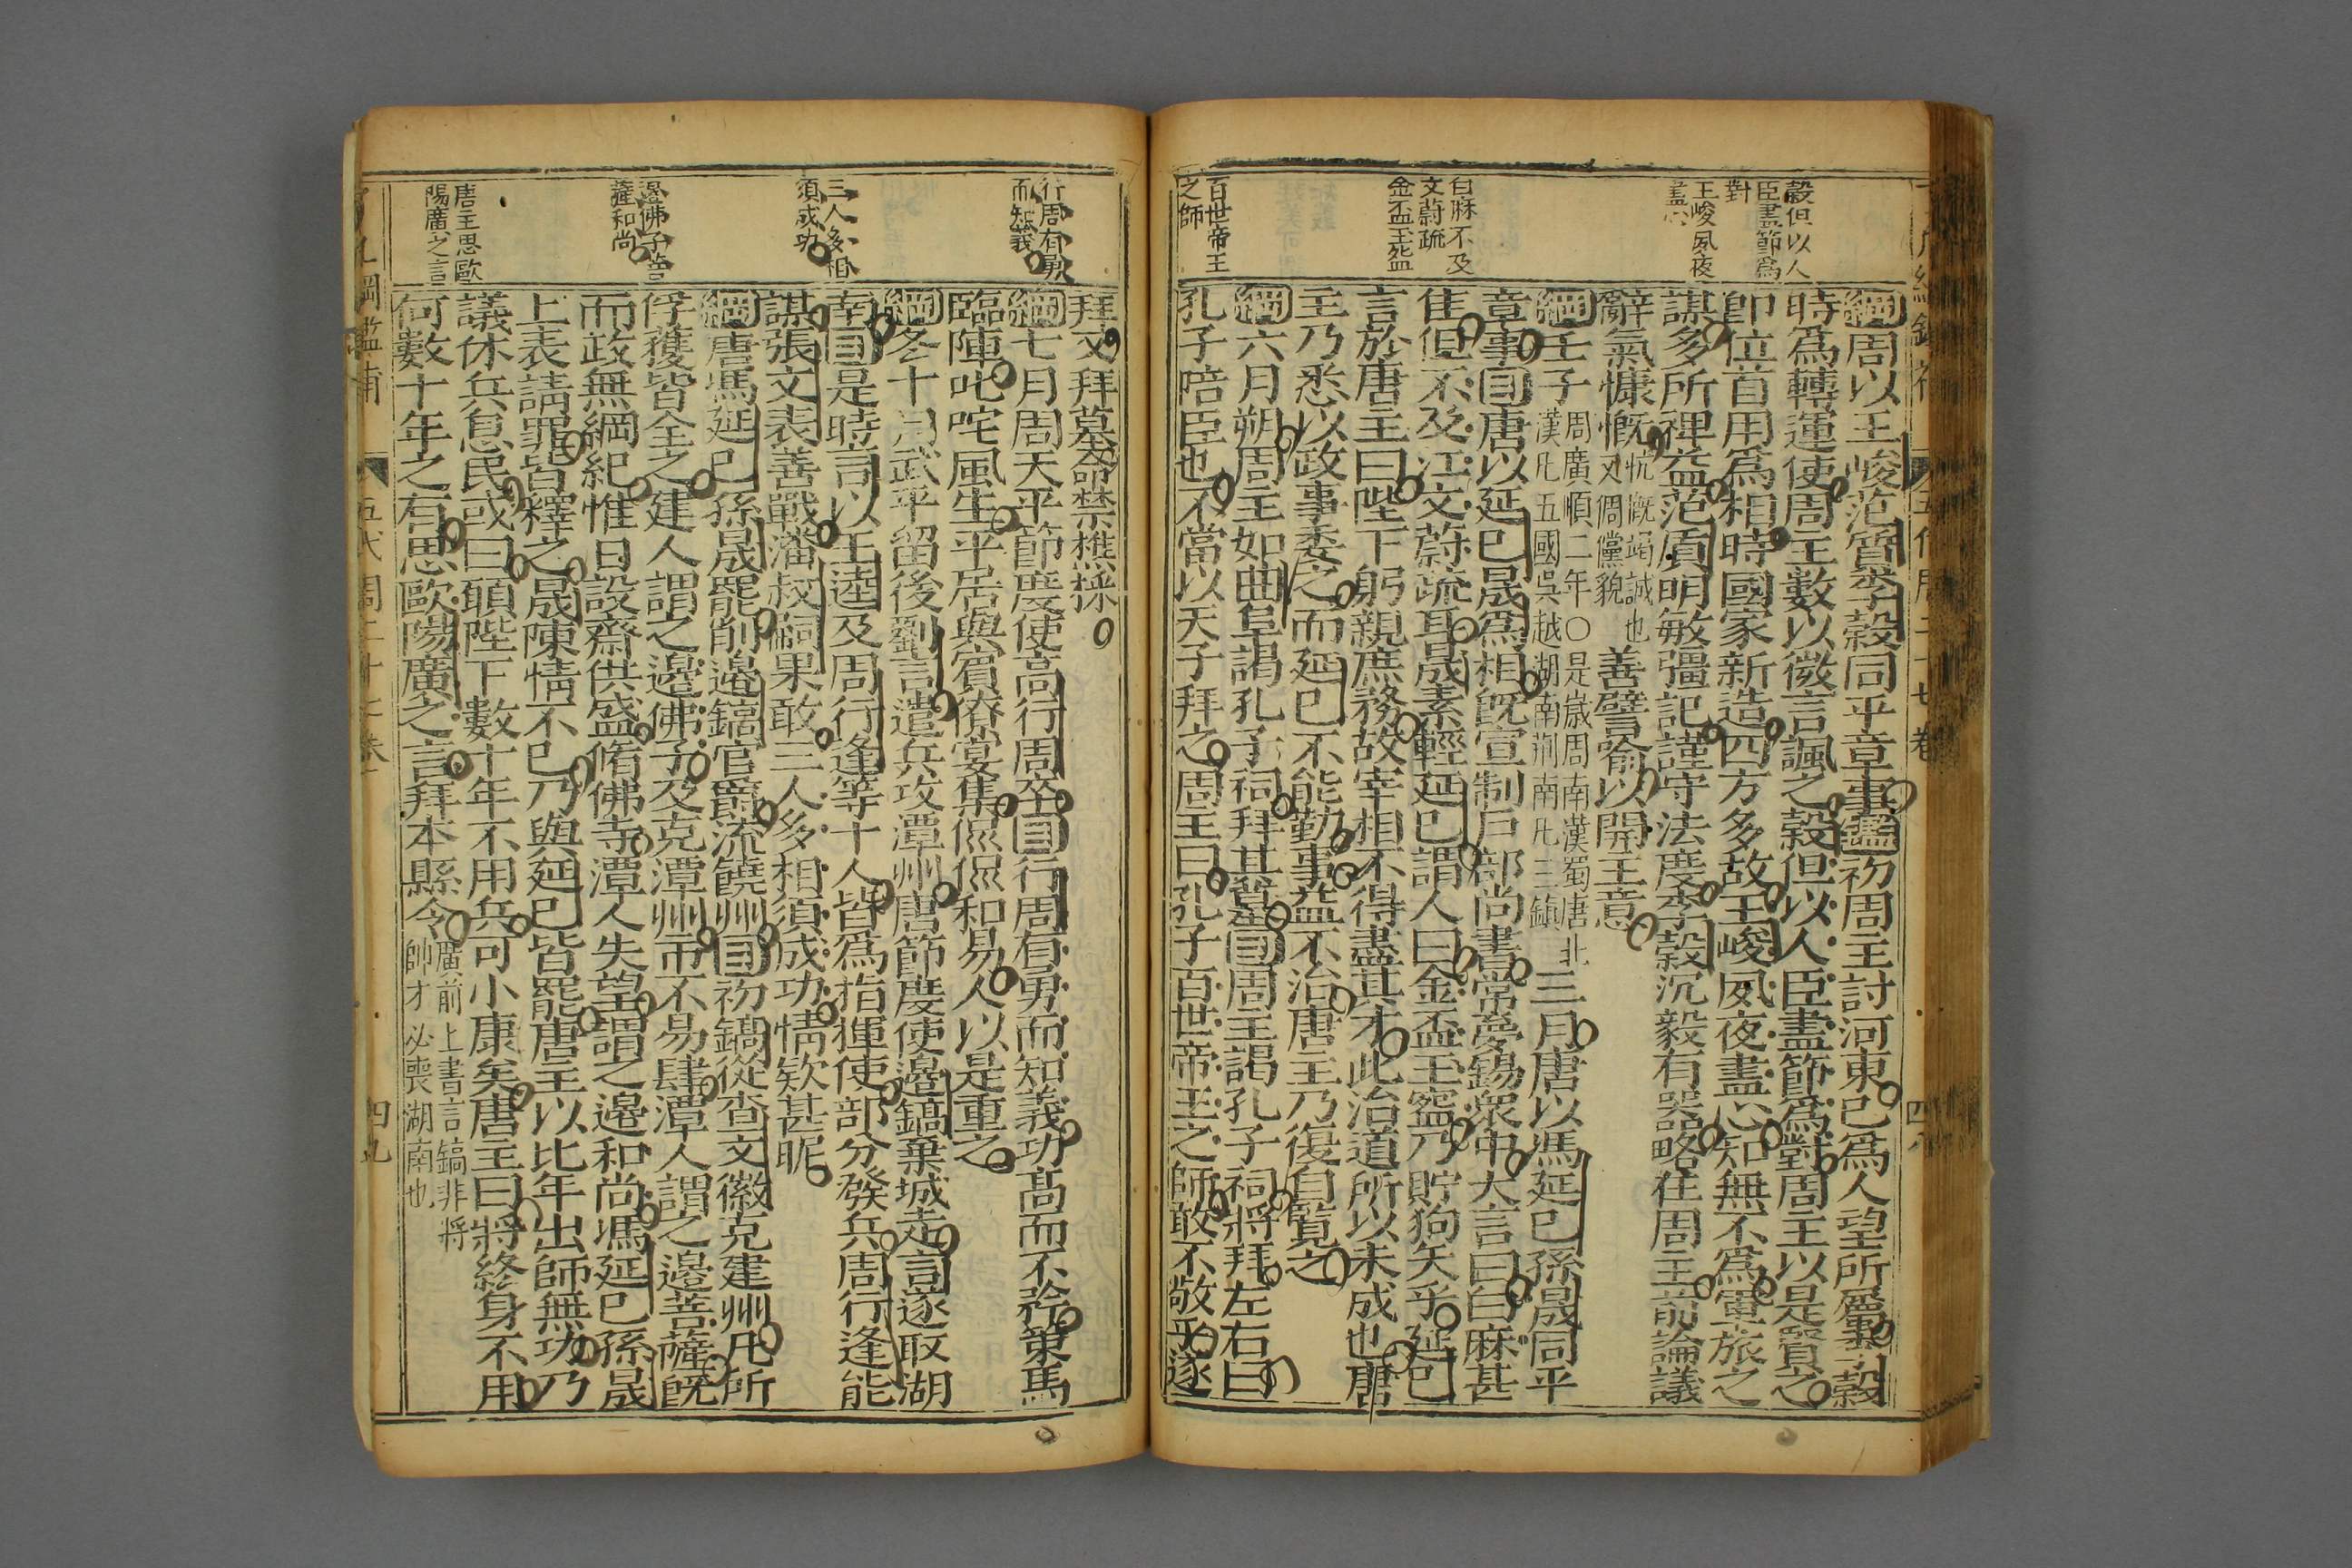 穀但以人
臣盡節爲
對
王峻夙夜
盡心
白麻不及
文蔚疏
金盃玉盌
百世帝王
之師
綱周以王峻范質李穀同平章事鑑初周主討河東已爲人望所屬李穀
時爲轉運使周主數以微言諷之穀但以人臣盡節爲對周主以是賢之
卽位首用爲相時國家新造四方多故王峻夙夜盡心知無不爲軍旅之
謀多所裨益范質明敏彊記謹守法度李穀沉毅有器略在周主前論議
辭氣慷慨忼慨竭誠也又倜儻貌善譬喻以開主意
綱壬子周廣順二年○是歲周南漢蜀唐北漢凡五國吳越湖南荊南凡三鎮三月唐以馮延巳孫晟同平
章事目唐以延巳晟爲相旣宣制戶部尚書常夢錫衆中大言曰白麻甚
佳但不及江文蔚疏耳晟素輕延巳謂人曰金盃玉盌乃貯狗矢乎延巳
言於唐主曰陛下躬親庶務故宰相不得盡其才此治道所以未成也唐
主乃悉以政事委之而延巳不能勤事益不治唐主乃復自覽之
綱六月朔周主如曲阜謁孔子祠拜其墓目周主謁孔子祠將拜左右曰
孔子陪臣也不當以天子拜之周主曰孔子百世帝王之師敢不敬乎遂
五代周二十七卷
四八
行周有勇
而知義
三人多相
須成功
邊佛子菩
薩和尚
唐主思歐
陽廣之言
拜又拜墓命禁樵採
綱七月周天平節度使高行周卒目行周有勇而知義功高而不矜策馬
臨陣叱咤風生平居與賓僚宴集侃侃和易人以是重之
綱冬十月武平留後劉言遣兵攻潭州唐節度使邊鎬棄城走言遂取湖
南目是時言以王逵及周行逢等十人皆爲指揮使部分發兵周行逢能
謀張文表善戰潘叔嗣果敢三人多相須成功情欵甚昵
綱唐馮延巳孫晟罷削邊鎬官爵流饒州目初鎬從查文徽克建州凡所
俘獲皆全之建人謂之邊佛子及克潭州市不易肆潭人謂之邊菩薩旣
而政無綱紀惟日設齋供盛脩佛寺潭人失望謂之邊和尚馮延巳孫晟
上表請罪皆釋之晟陳情不已乃與延巳皆罷唐主以比年出師無功乃
議休兵息民或曰願陛下數十年不用兵可小康矣唐主曰將終身不用
何數十年之有思歐陽廣之言拜本縣令廣前上書言鎬非將帥才必喪湖南也
了凡綱鑑補
五代周二十七卷
四九